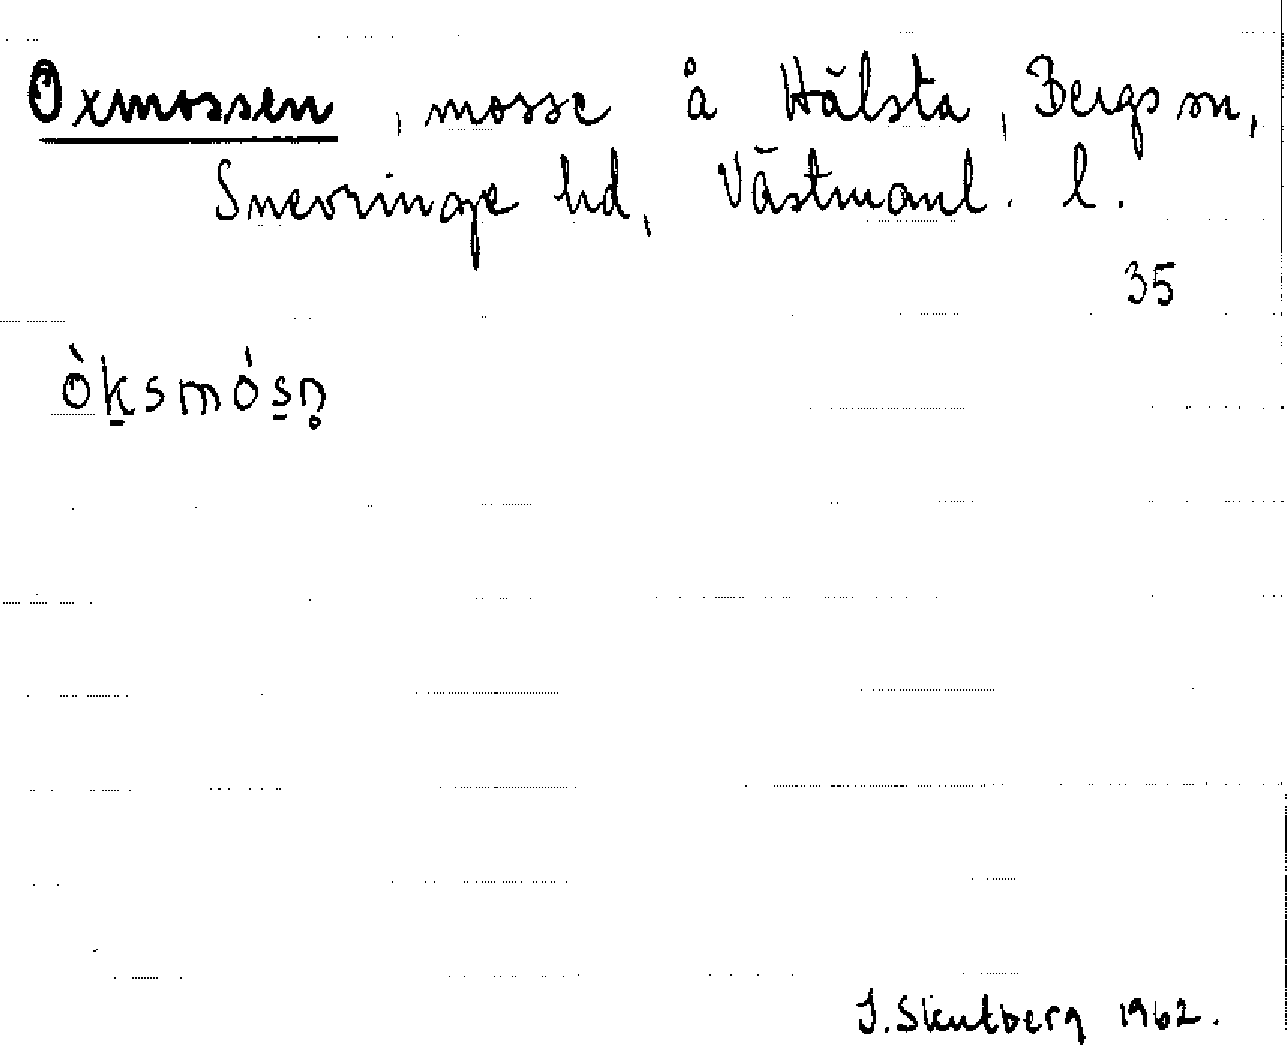 Oxmossen, mosse å Hälsta, Bergs sn,
Snevringe hd, Västmanl. l.
35
òksmósn̥
J. Skutberg 1962.